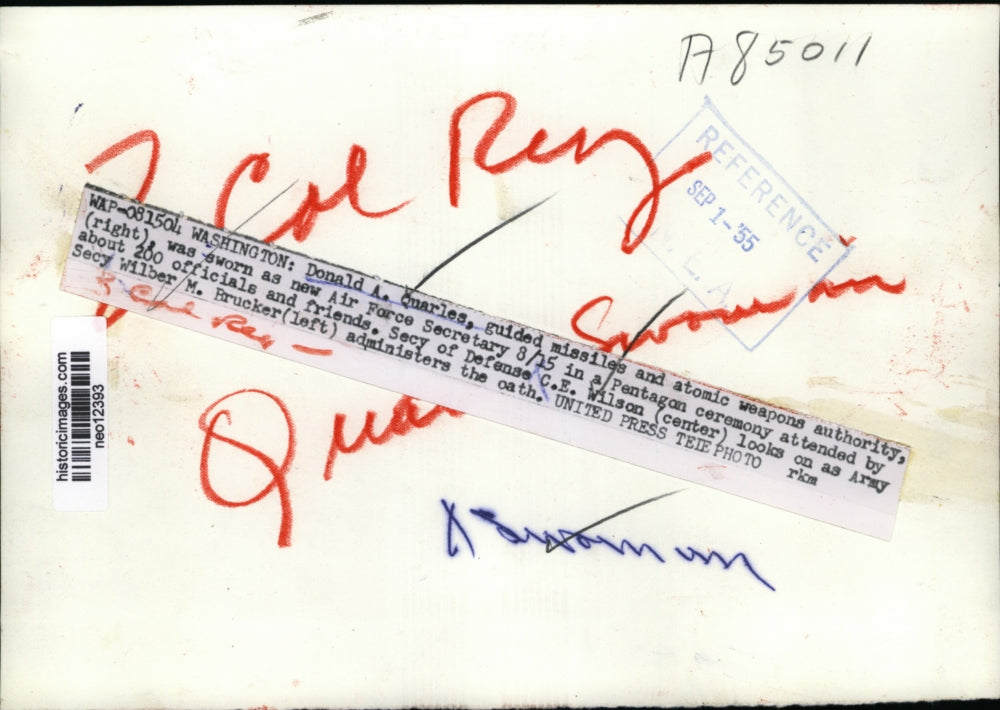 A85011
3 Col Reg
REFERENCE
SEP 1-'55
WAP-081504 WASHINGTON: Donald A. Quarles, guided missiles and atomic weapons authority,
(right), was sworn as new Air Force Secretary 8/15 in a Pentagon ceremony attended by
about 200 officials and friends. Secy of Defense C.E. Wilson (center) looks on as Army
Secy Wilber M. Brucker(left) administers the oath. UNITED PRESS TELEPHOTO
rkm
3 Col Reg -
Sworn in
Qua
historicimages.com
neo12393